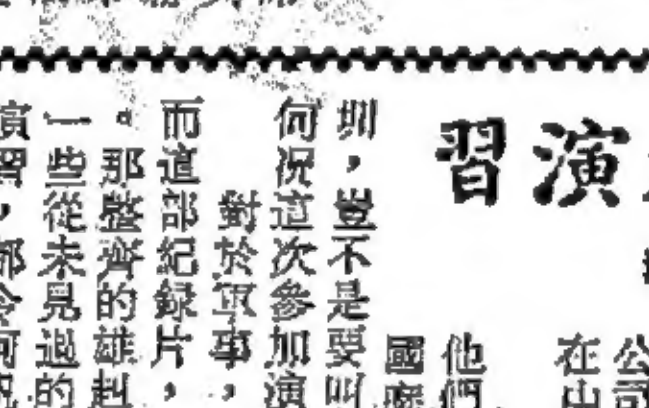 演習
公司
在出
他們
國慶
圳，豈不是要叫
何況這次參加演
對於軍事，
而這部紀錄片，
。那整齊的雄赳
一些從未見過的
演習，都令